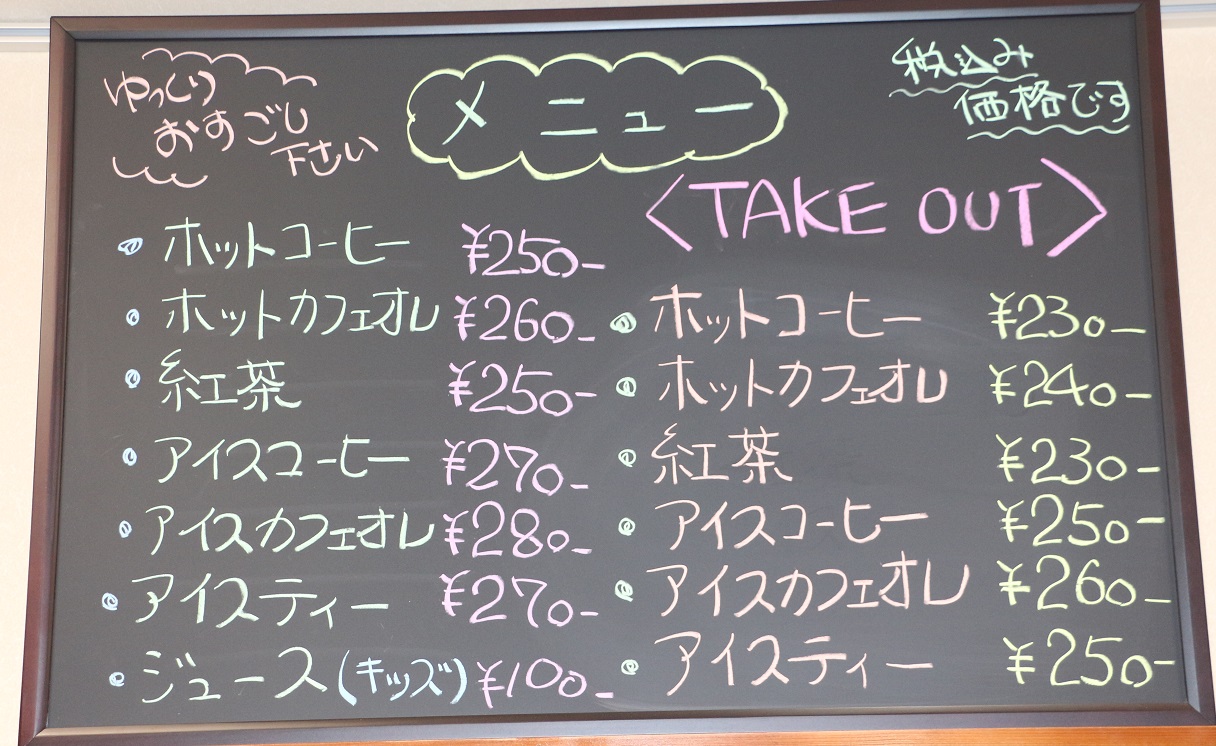 ゆっくり
おすごし
下さい
メニュー
税込み
価格です
・ホットコーヒー ¥250-
・ホットカフェオレ ¥260-
・紅茶 ¥250-
・アイスコーヒー ¥270-
・アイスカフェオレ ¥280-
・アイスティー ¥270-
・ジュース(キッズ) ¥100-
<TAKE OUT>
・ホットコーヒー ¥230-
・ホットカフェオレ ¥240-
・紅茶 ¥230-
・アイスコーヒー ¥250-
・アイスカフェオレ ¥260-
・アイスティー ¥250-